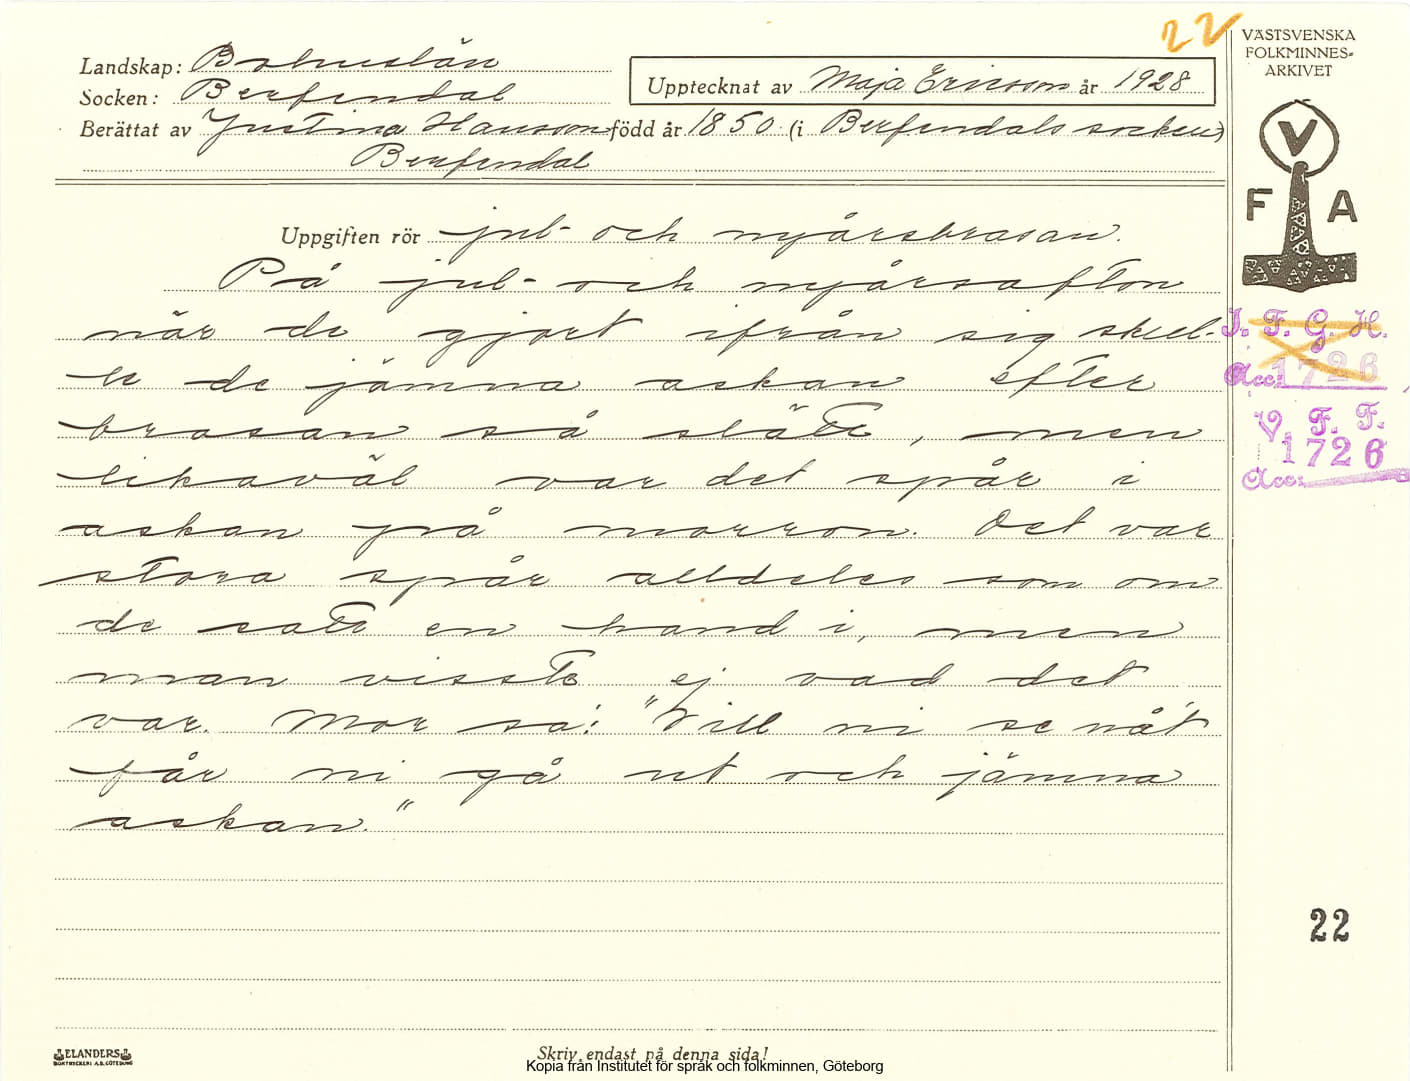 22
VÄSTSVENSKA
FOLKMINNES-
ARKIVET
Landskap: Bohuslän
Socken: Berfendal
Upptecknat av Maja Ericson år 1928
Berättat av Justina Hansson född år 1850 (i Berfendals socken)
Berfendal
V
F A
Uppgiften rör jul- och nyårsbrasan.
På jul- och nyårsafton
när de gjort ifrån sig skul-
le de jämna askan efter
brasan så slätt, men
likaväl var det spår i
askan på morron. Det var
stora spår alldeles som om
de satt en hand i, men
man visste ej vad det
var. Mor sa: "Vill ni se nåt
får ni gå ut och jämna
askan."
I. F. G. H.
Acc: 1726
V. F. F.
1726
Acc:
22
ELANDERS
BOKTRYCKERI A.B. GÖTEBORG
Skriv endast på denna sida!
Kopia från Institutet för språk och folkminnen, Göteborg